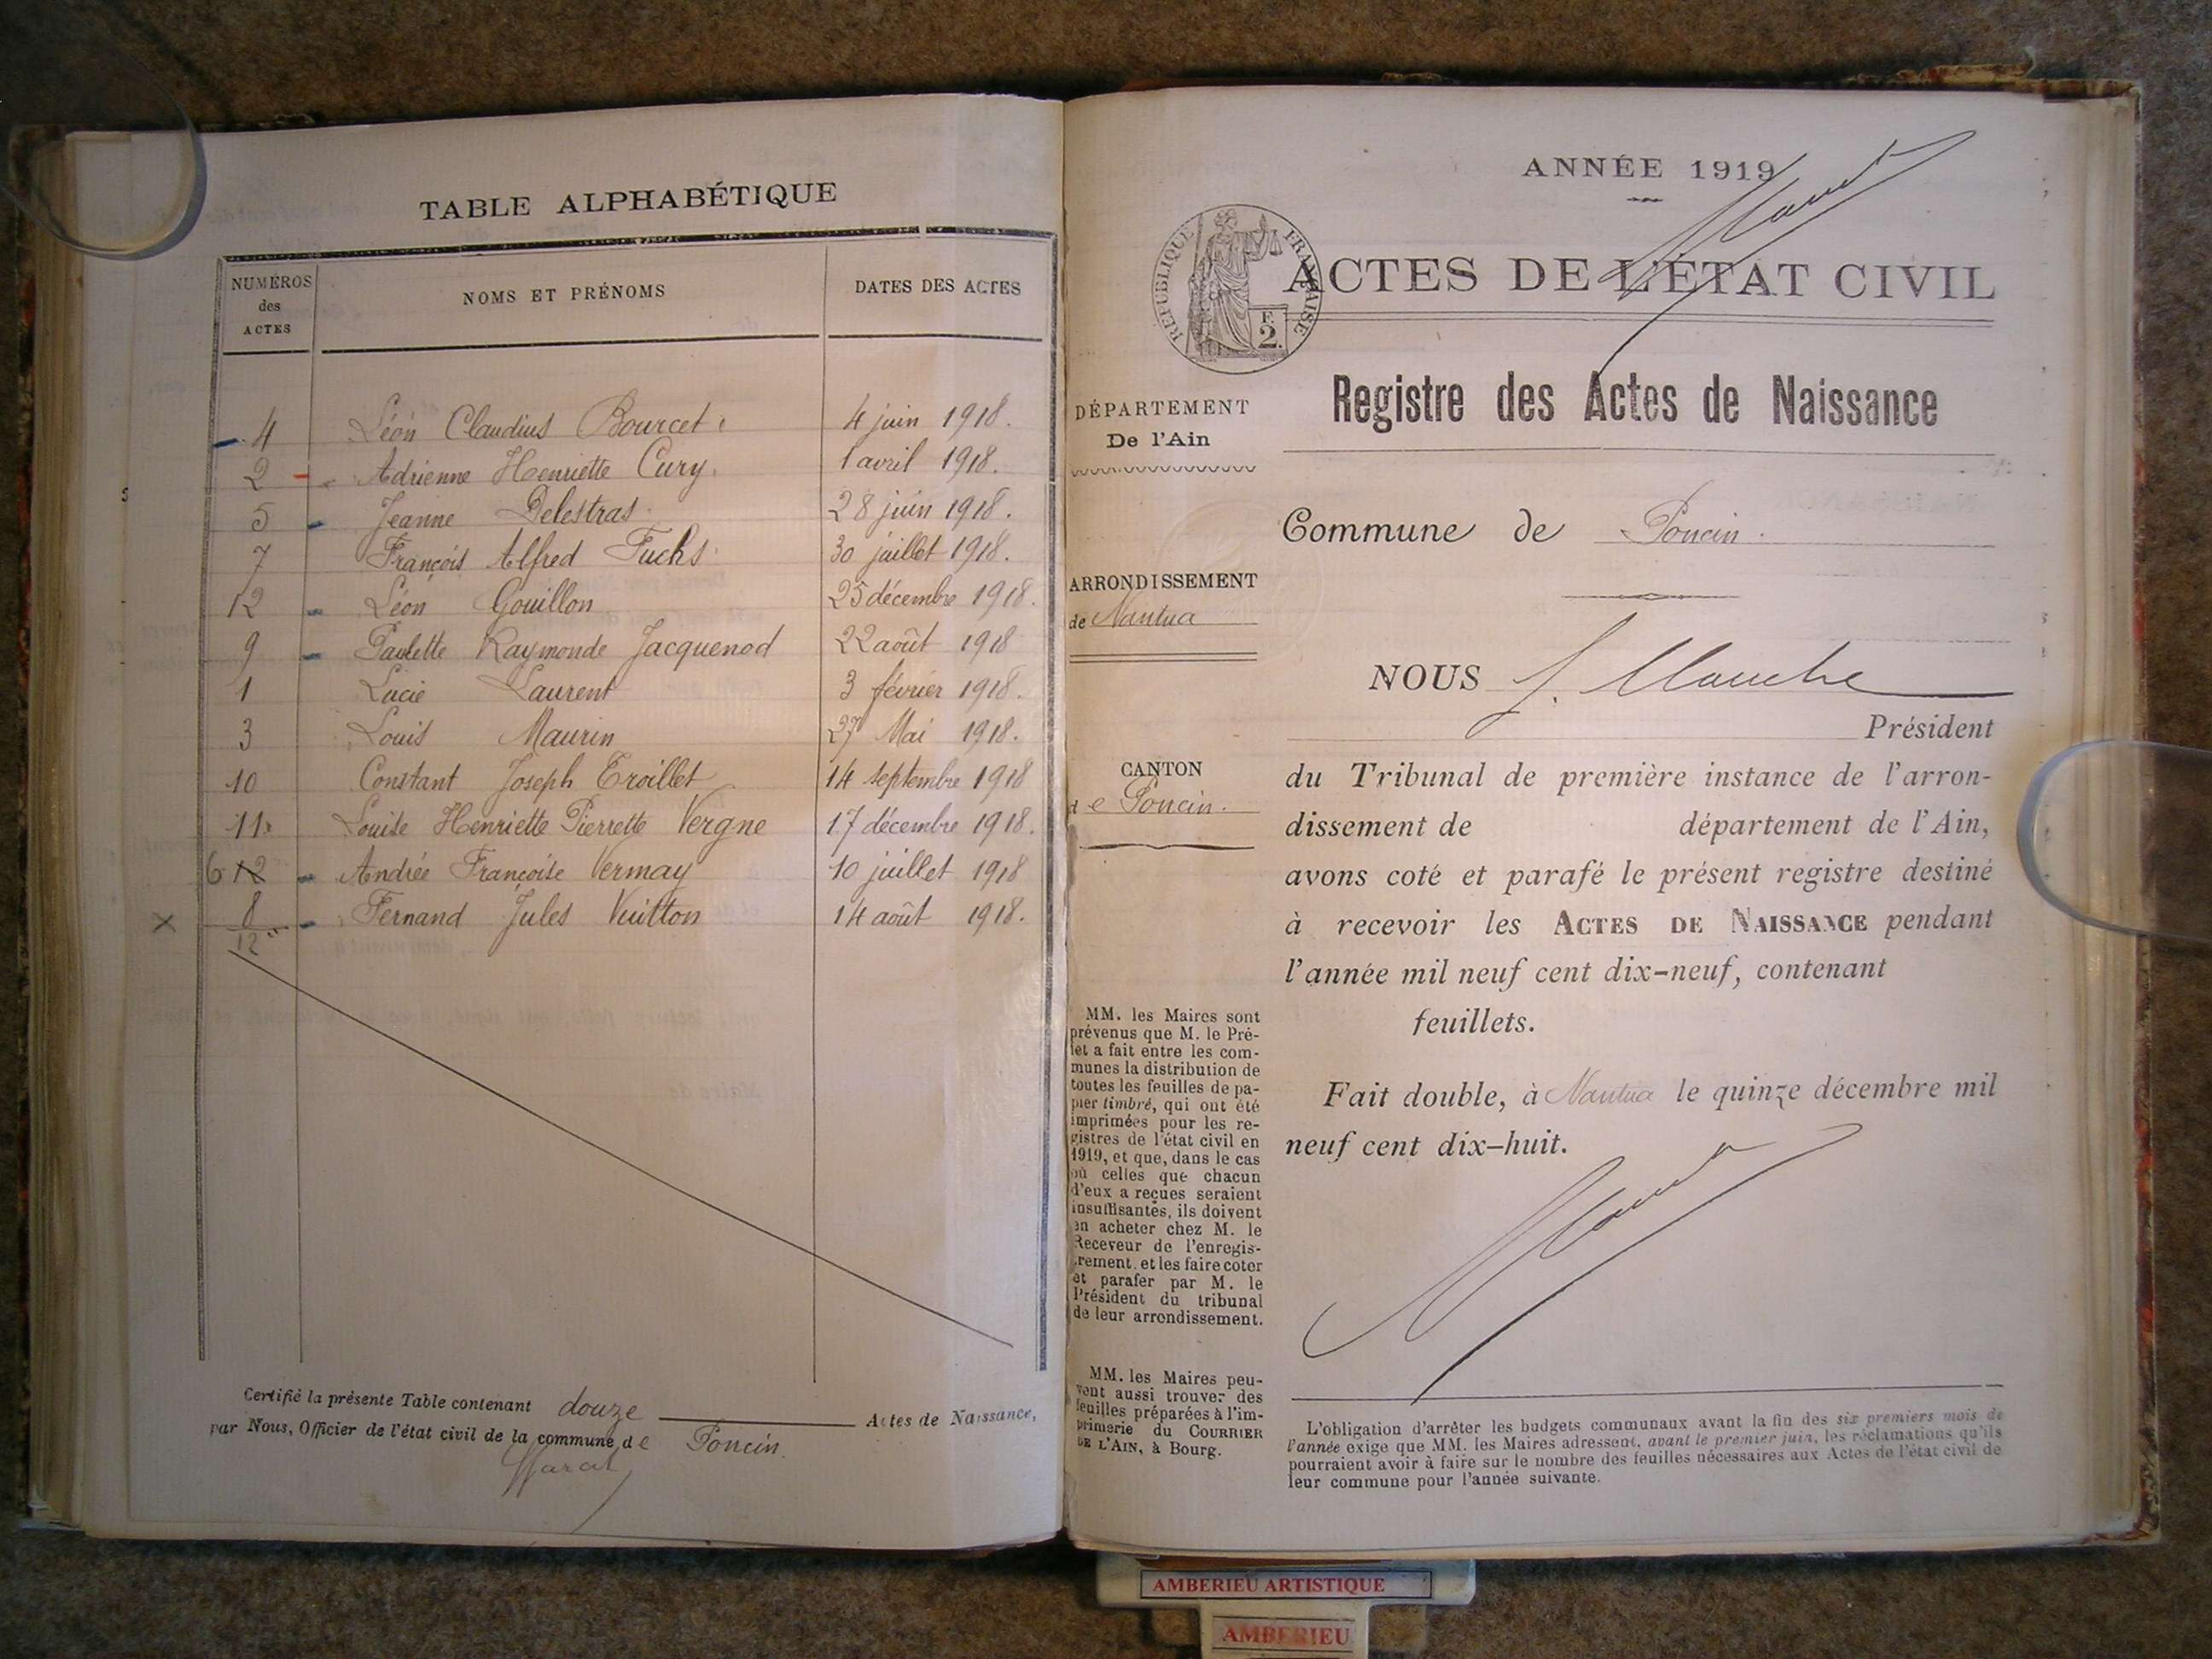 TABLE ALPHABÉTIQUE
NUMÉROS des ACTES NOMS ET PRÉNOMS DATES DES ACTES
4 Léon Claudius Bourcet 4 juin 1918.
2 Adrienne Henriette Cury 1 avril 1918.
5 Jeanne Delestras 28 juin 1918.
7 François Alfred Fuchs 30 juillet 1918.
12 Léon Gouillon 25 décembre 1918.
9 Paulette Raymonde Jacquenod 22 août 1918
1 Lucie Laurent 3 février 1918.
3 Louis Maurin 27 Mai 1918.
10 Constant Joseph Troillet 14 septembre 1918
11 Louise Henriette Pierrette Vergne 17 décembre 1918.
6 12 Andrée Françoise Vermay 10 juillet 1918
X 8 Fernand Jules Vuitton 14 août 1918.
12
Certifié la présente Table contenant douze Actes de Naissance,
par Nous, Officier de l'état civil de la commune de Poncin.
ANNÉE 1919
RÉPUBLIQUE FRANÇAISE
F. 2.
ACTES DE L'ÉTAT CIVIL
Registre des Actes de Naissance
DÉPARTEMENT
De l'Ain
Commune de Poncin.
ARRONDISSEMENT
de Nantua
NOUS
Président
CANTON
de Poncin.
du Tribunal de première instance de l'arron-
dissement de département de l'Ain,
avons coté et parafé le présent registre destiné
à recevoir les ACTES DE NAISSANCE pendant
l'année mil neuf cent dix-neuf, contenant
feuillets.
Fait double, à Nantua le quinze décembre mil
neuf cent dix-huit.
MM. les Maires sont
prévenus que M. le Pré-
fet a fait entre les com-
munes la distribution de
toutes les feuilles de pa-
pier timbré, qui ont été
imprimées pour les re-
gistres de l'état civil en
1919, et que, dans le cas
où celles que chacun
d'eux a reçues seraient
insuffisantes, ils doivent
en acheter chez M. le
Receveur de l'enregis-
trement, et les faire coter
et parafer par M. le
Président du tribunal
de leur arrondissement.
MM. les Maires peu-
vent aussi trouver des
feuilles préparées à l'im-
primerie du COURRIER
DE L'AIN, à Bourg.
L'obligation d'arrêter les budgets communaux avant la fin des six premiers mois de
l'année exige que MM. les Maires adressent, avant le premier juin, les réclamations qu'ils
pourraient avoir à faire sur le nombre des feuilles nécessaires aux Actes de l'état civil de
leur commune pour l'année suivante.
AMBERIEU ARTISTIQUE
AMBERIEU